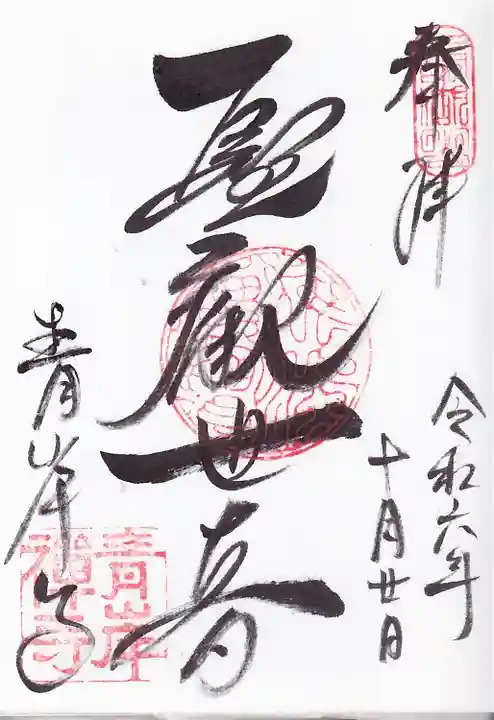 奉拝
令和六年
十月廿日
聖観世音
青岸寺
青岸禅寺